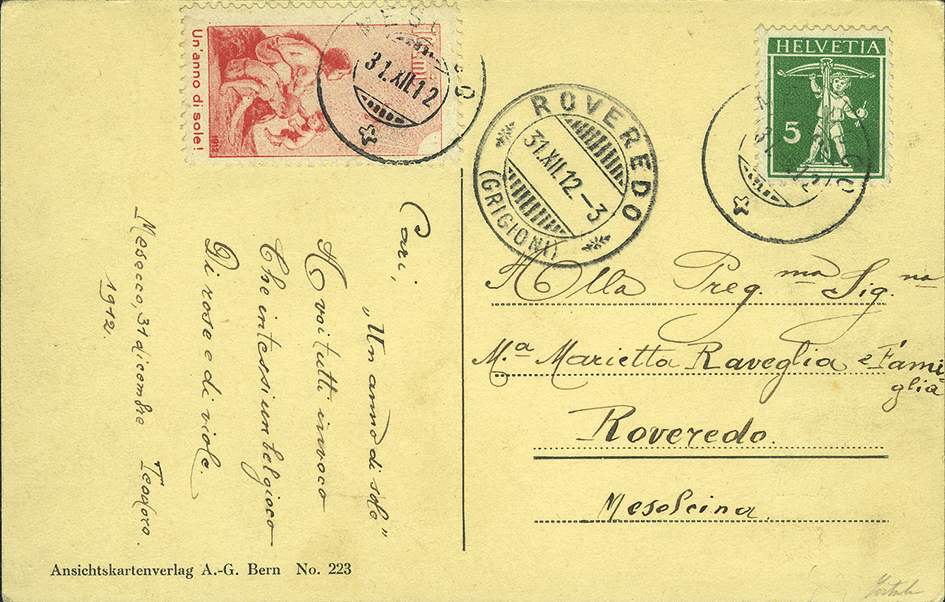 Un'anno di sole!
1912
31.XII.12
ROVEREDO
31.XII.12-3
(GRIGIONI)
HELVETIA
5
Cari,
„Un anno di sole"
A voi tutti invoco
Che intessi un bel gioco
Di rose e di viole.
Mesocco, 31 dicembre
1912.
Teodoro.
Alla Preg.ma Sig.na
M.a Marietta Raveglia e Fami
glia
Roveredo.
Mesolcina.
Ansichtskartenverlag A.-G. Bern No. 223